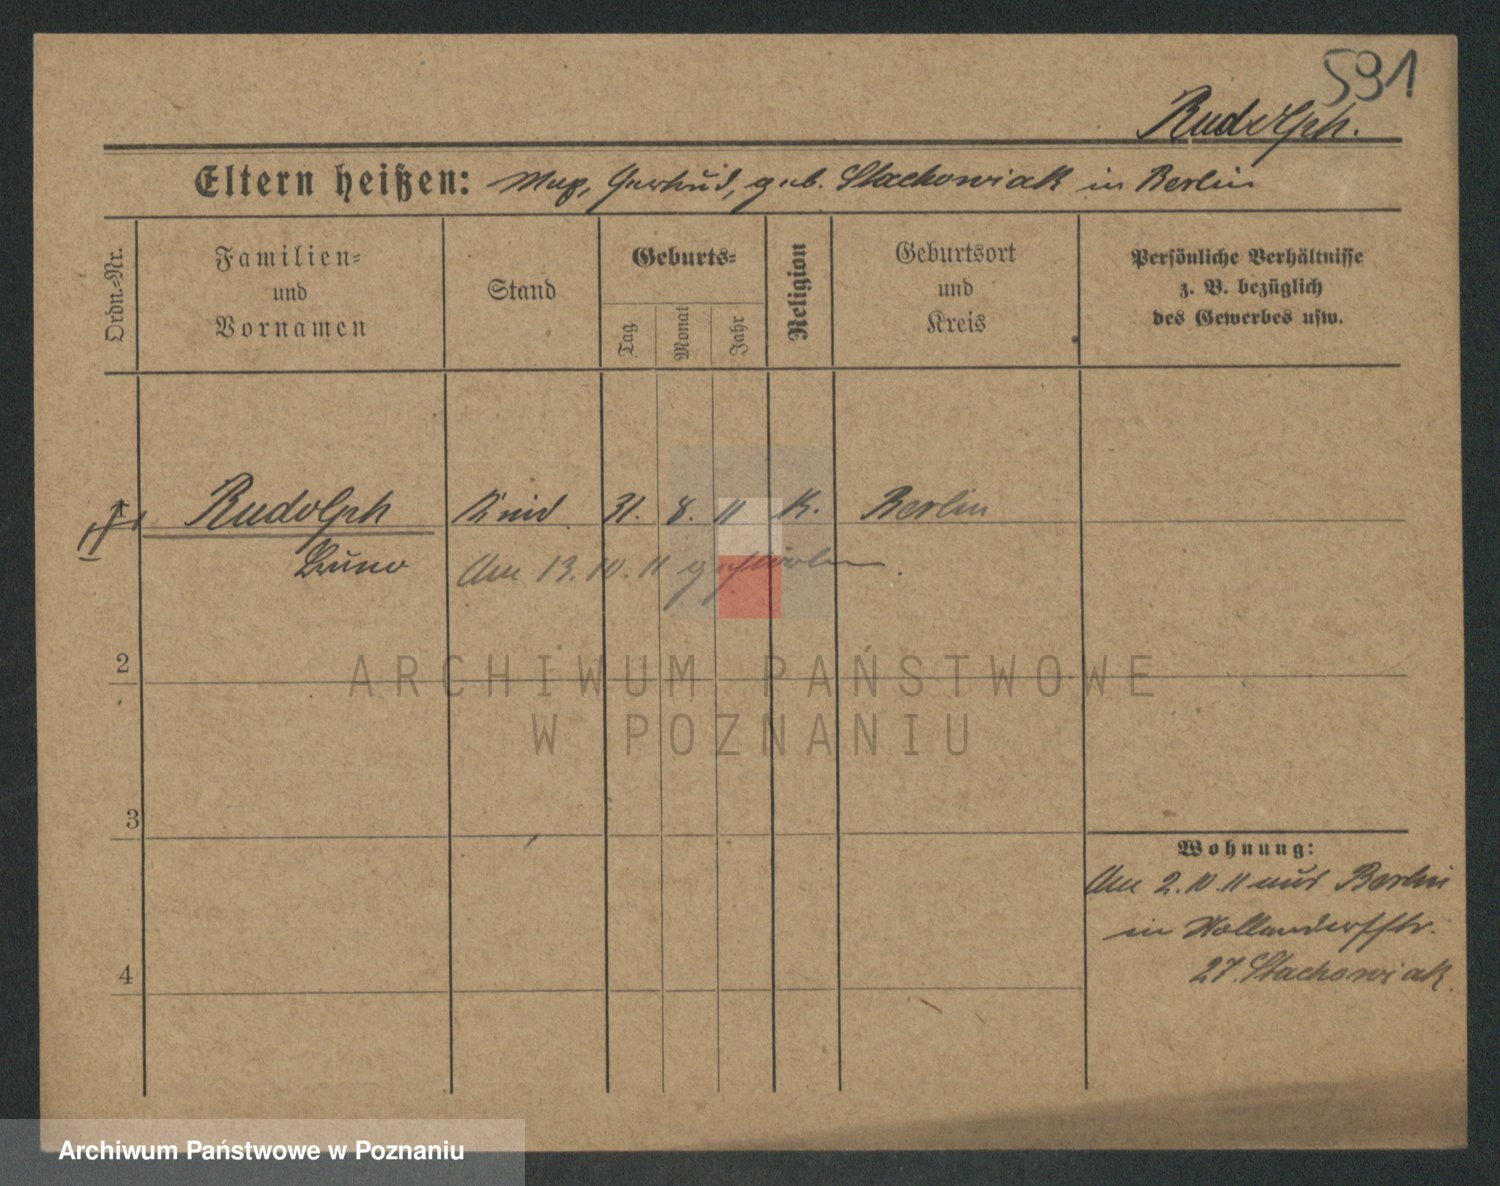 591
Rudolph.
Eltern heißen: Max, Gertrud, geb. Stachowiak in Berlin
Ordn.-Nr.
Familien-
und
Vornamen
Stand
Geburts-
Tag
Monat
Jahr
Religion
Geburtsort
und
Kreis
Persönliche Verhältnisse
z. B. bezüglich
des Gewerbes usw.
Rudolph Kind. 31. 8. 11 K. Berlin
Bruno Am 13. 10. 11 gestorben.
2
3
4
Wohnung:
Am 2. 10. 11 aus Berlin
in
27. Stachowiak.
ARCHIWUM PAŃSTWOWE
W POZNANIU
Archiwum Państwowe w Poznaniu